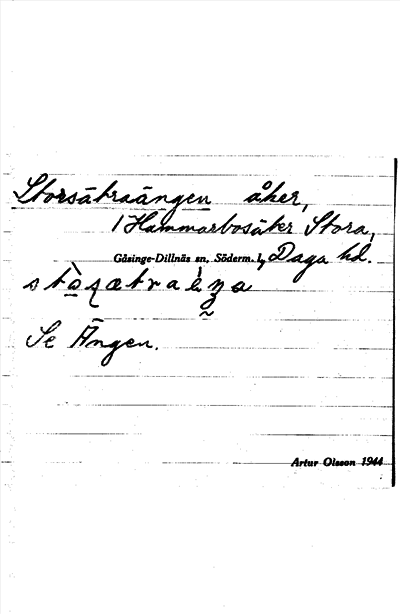 Storsätraängen åker,
1 Hammarbosäter Stora,
Gåsinge-Dillnäs sn, Söderm. l, Daga hd.
Se Ängen.
Artur Olsson 1944